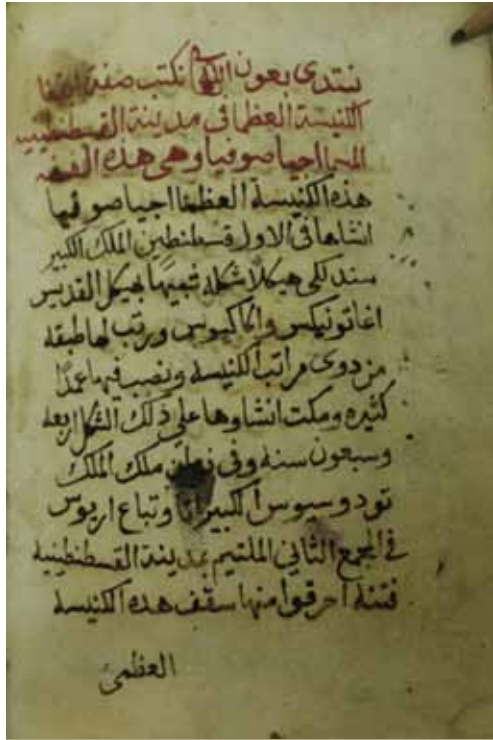 نبتدى بعون الله نكتب صفة
الكنيسة العظما فى مدينة القسطنطينيه
اجيا صوفيا وهى هذه
هذه الكنيسة العظما اجيا صوفيا
انشاها فى الاول قسطنطين الملك الكبير
هيكلًا شكله شبيهًا بهيكل القديس
اغاتونيكس واكاكيوس ورتب لها طبقه
من دوى مراتب الكنيسه ونصب فيها عمدًا
كثيره ومكت انشاوها على ذلك الشكل اربعه
وسبعون سنه وفى زمان ملك الملك
تودوسيوس الكبير وتباع اريوس
فى المجمع الثانى الملتيم بمدينة القسطنطينيه
فتنة احرقوا منها سقف هده الكنيسه
العظمى